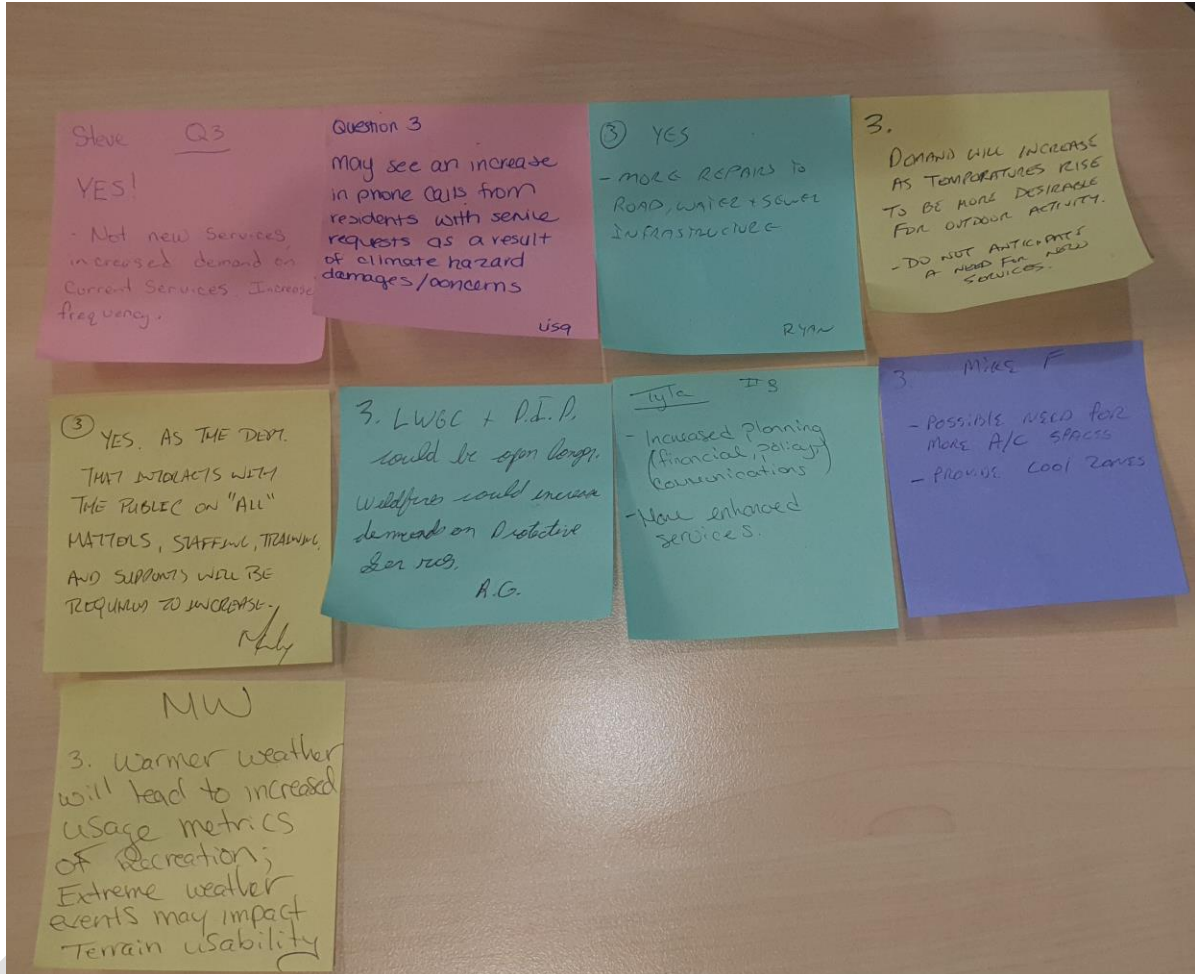 Steve Q3
YES!
- Not new services,
increased demand on
current services. Increase
frequency.
Question 3
may see an increase
in phone calls from
residents with service
requests as a result
of climate hazard
damages/concerns
Lisa
③ YES
- MORE REPAIRS TO
ROAD, WATER + SEWER
INFRASTRUCTURE
RYAN
3.
DEMAND WILL INCREASE
AS TEMPORATURES RISE
TO BE MORE DESIRABLE
FOR OUTDOOR ACTIVITY.
- DO NOT ANTICIPATE
A NEED FOR NEW
SERVICES.
③ YES. AS THE DEPT.
THAT INTERACTS WITH
THE PUBLIC ON "ALL"
MATTERS, STAFFING, TRAINING,
AND SUPPORTS WILL BE
REQUIRED TO INCREASE.
3. LWGC + D.I.P.
could be open longer.
Wildfires could increase
demands on Protective
Services.
R.G.
- Increased planning
(financial, policy,
communications)
- More enhanced
services.
3. MIKE F
- POSSIBLE NEED FOR
MORE A/C SPACES
- PROVIDE COOL ZONES
MW
3. Warmer weather
will lead to increased
usage metrics
of Recreation;
Extreme weather
events may impact
Terrain usability